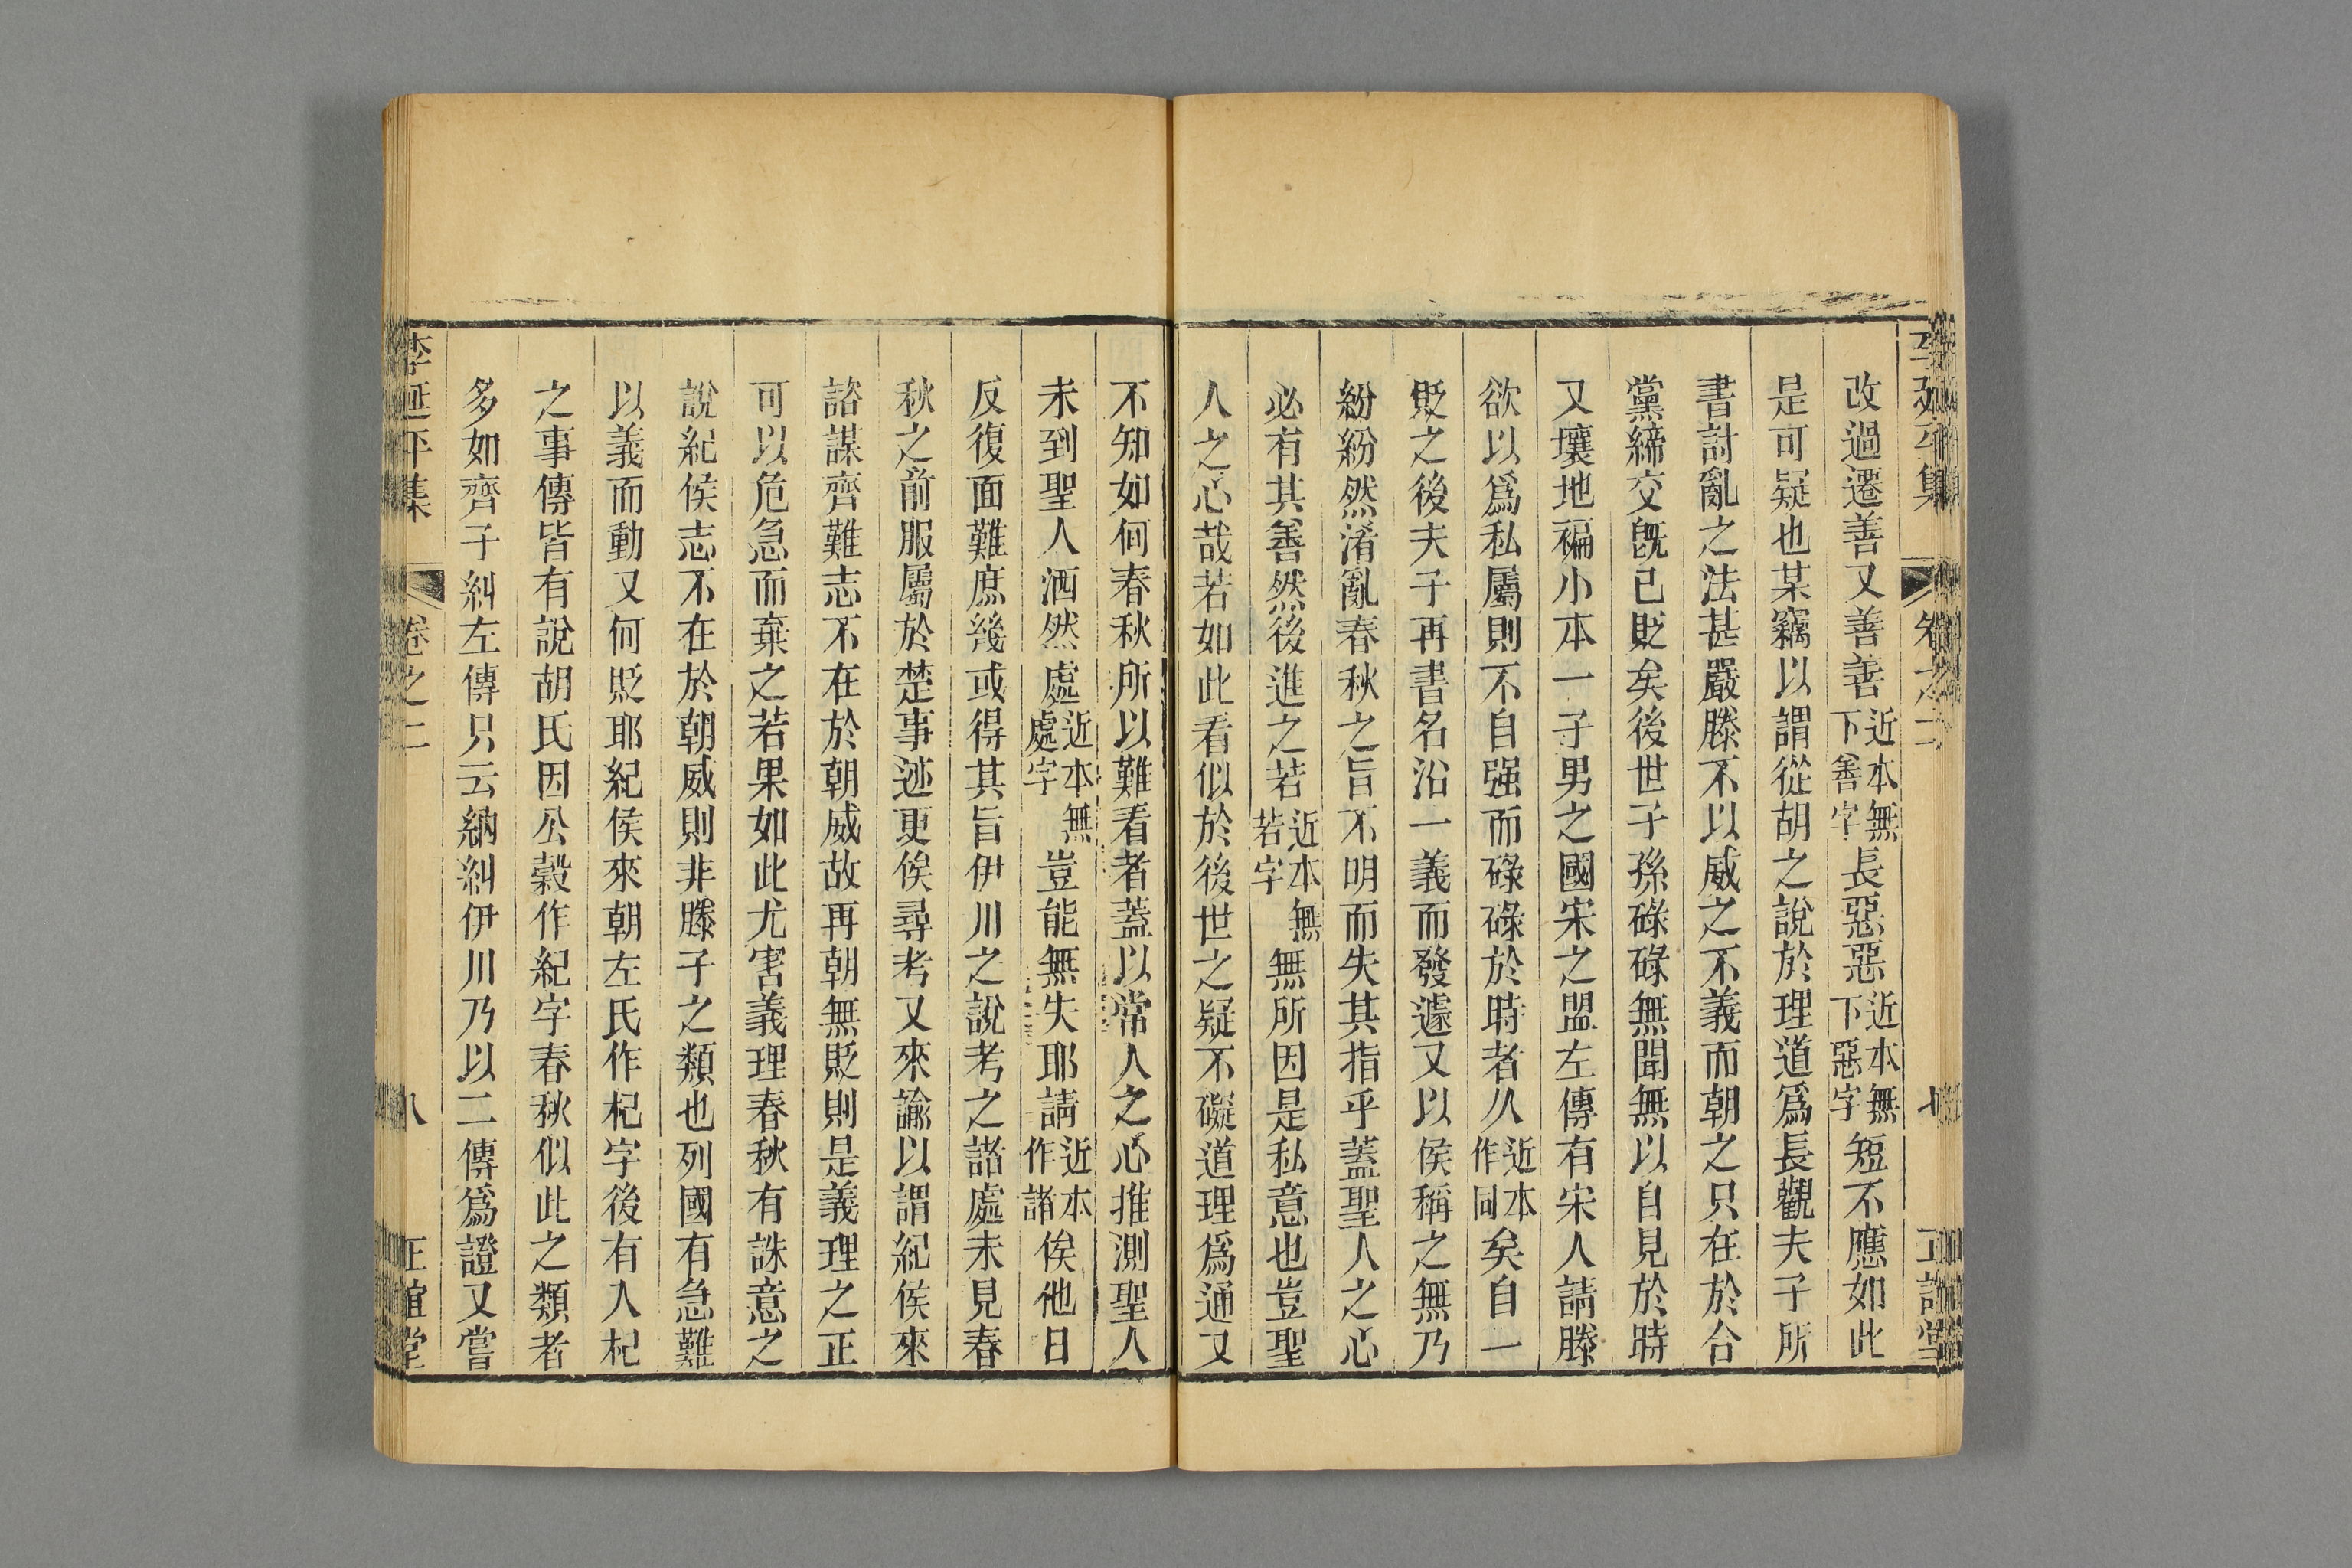 改過遷善又善善近本無下善字長惡惡近本無下惡字短不應如此
是可疑也某竊以謂從胡之說於理道爲長觀夫子所
書討亂之法甚嚴滕不以威之不義而朝之只在於合
黨締交旣已貶矣後世子孫碌碌無聞無以自見於時
又壤地褊小本一子男之國宋之盟左傳有宋人請滕
欲以爲私屬則不自强而碌碌於時者久近本作同矣自一
貶之後夫子再書名沿一義而發遽又以侯稱之無乃
紛紛然淆亂春秋之旨不明而失其指乎蓋聖人之心
必有其善然後進之若近本無若字無所因是私意也豈聖
人之心哉若如此看似於後世之疑不礙道理爲通又
不知如何春秋所以難看者蓋以常人之心推測聖人
未到聖人洒然處近本無處字豈能無失耶請近本作諸俟他日
反復面難庶幾或得其旨伊川之說考之諸處未見春
秋之前服屬於楚事迹更俟尋考又來諭以謂紀侯來
諮謀齊難志不在於朝威故再朝無貶則是義理之正
可以危急而棄之若果如此尤害義理春秋有誅意之
說紀侯志不在於朝威則非滕子之類也列國有急難
以義而動又何貶耶紀侯來朝左氏作杞字後有入杞
之事傳皆有說胡氏因公榖作紀字春秋似此之類者
多如齊子糾左傳只云納糾伊川乃以二傳爲證又嘗
李延平集
卷之二
八
正誼堂